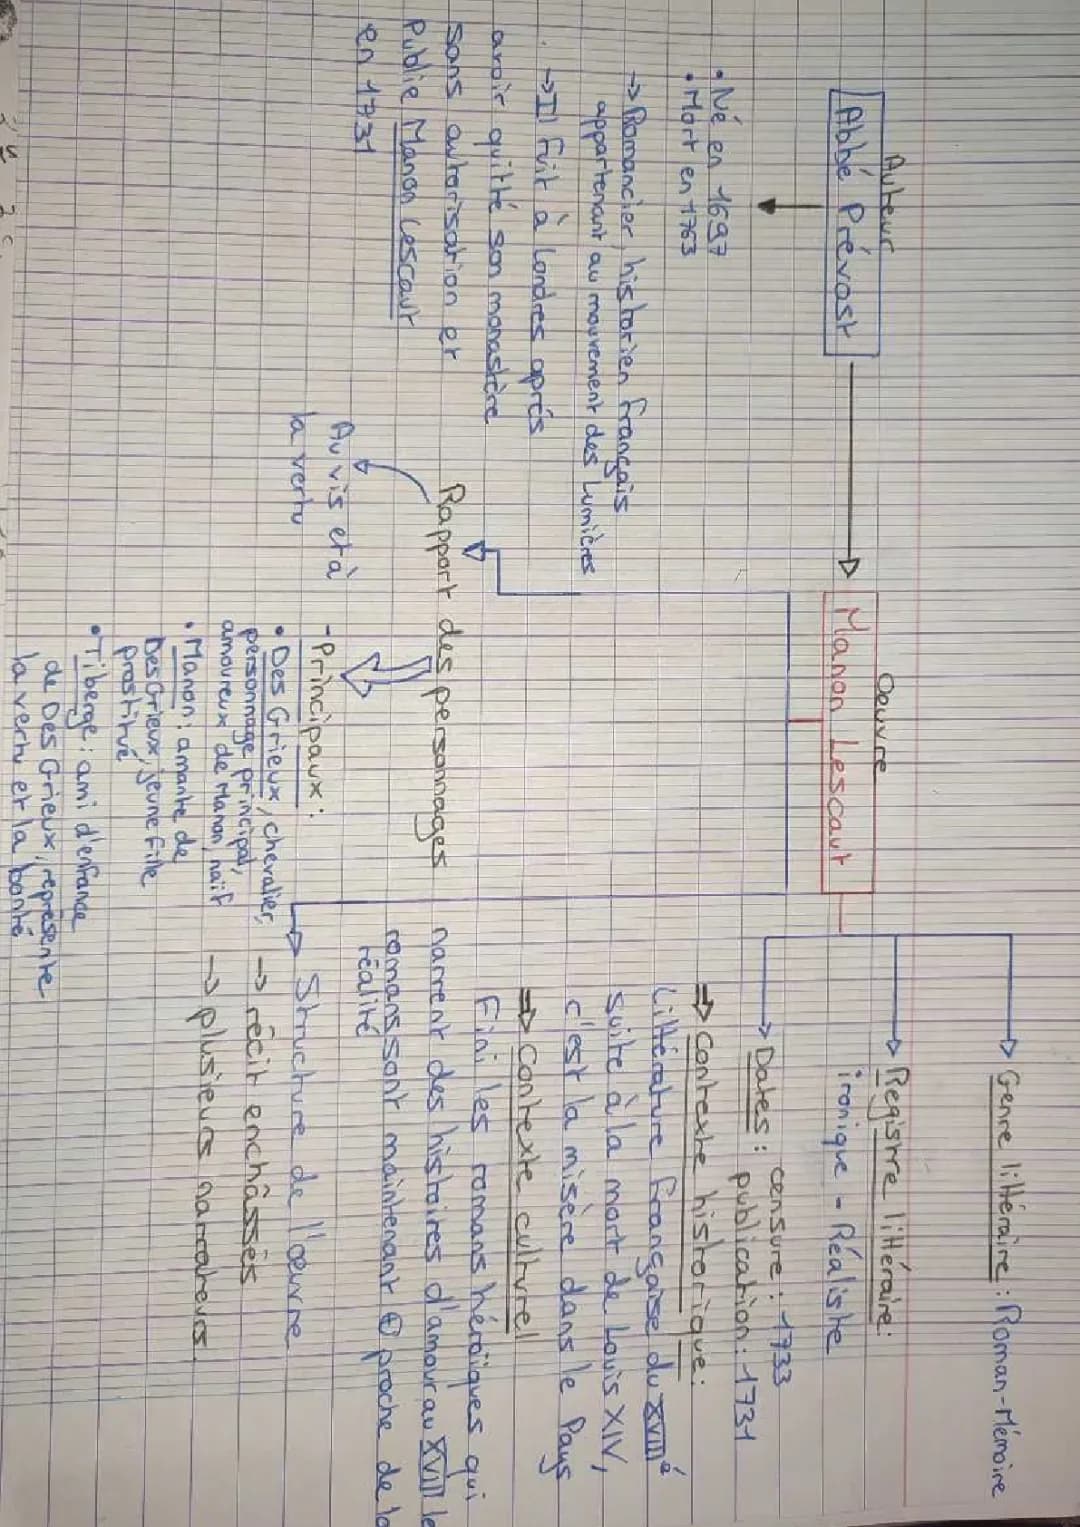 Auteur
Abbé Prévost
• Né en 1697
• Mort en 1763
→ Romancier, historien français
appartenant au mouvement des Lumières
→ Il fuit à Londres après
avoir quitté son monastère
sans autorisation et
Publie Manon Lescaut
en 1731
Oeuvre
Manon Lescaut
Genre littéraire : Roman-Mémoire
Registre littéraire :
ironique - Réaliste
Dates : censure : 1733
publication : 1731
⇒ Contexte historique :
Littérature française du XVIII è
suite à la mort de Louis XIV,
c'est la misère dans le Pays
⇒ Contexte culturel
Fini les romans héroïques qui
narrent des histoires d'amour au XVIII le
romans sont maintenant ⊕ proche de la
réalité
Rapport des personnages
Au vis et à
la vertu
- Principaux :
• Des Grieux, chevalier,
personnage principal,
amoureux de Manon, naïf
• Manon : amante de
Des Grieux, jeune fille
prostitué
• Tiberge : ami d'enfance
de Des Grieux, représente
la vertu et la bonté
Structure de l'œuvre
→ récit enchâssés
→ plusieurs narrateurs.